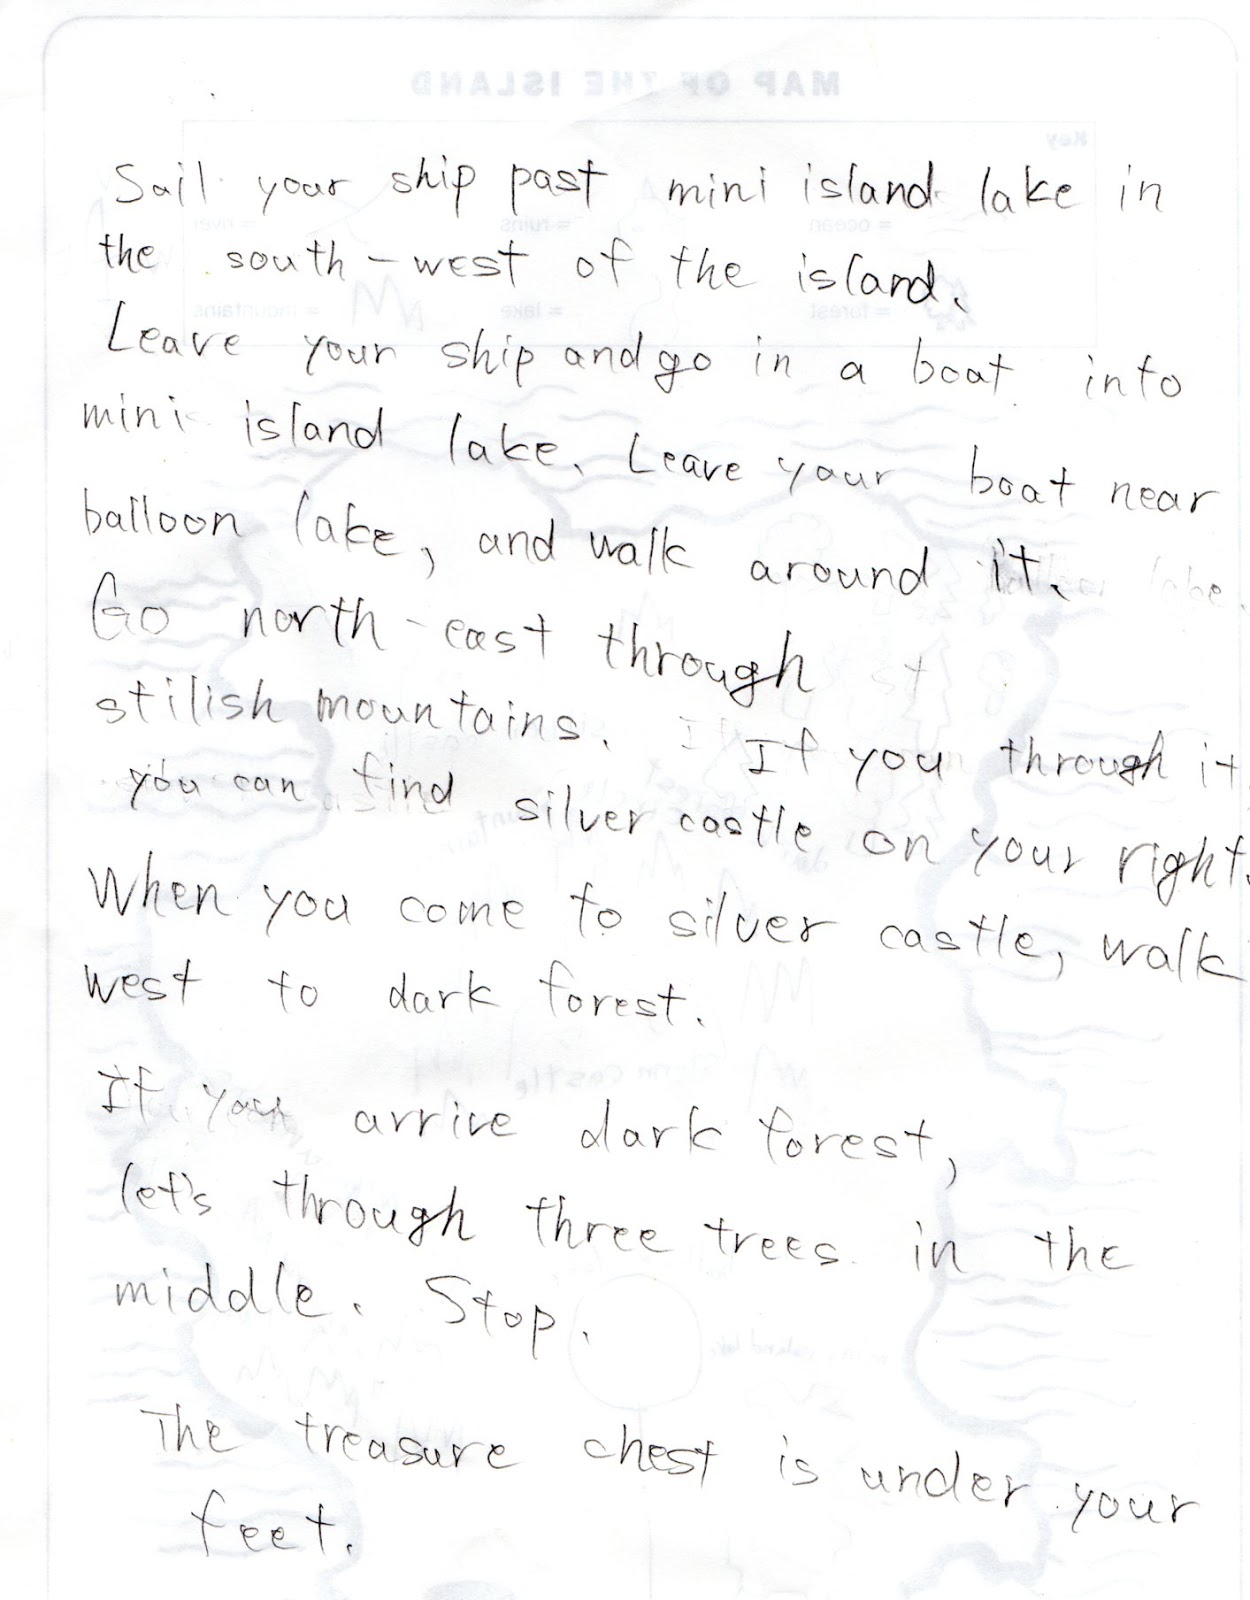 Sail your ship past mini island lake in
the south-west of the island.
Leave your ship and go in a boat into
mini island lake. Leave your boat near
balloon lake, and walk around it.
Go north-east through
stilish mountains. If you through it
you can find silver castle on your right.
When you come to silver castle, walk
west to dark forest.
If you arrive dark forest,
let's through three trees in the
middle. Stop.
The treasure chest is under your
feet.